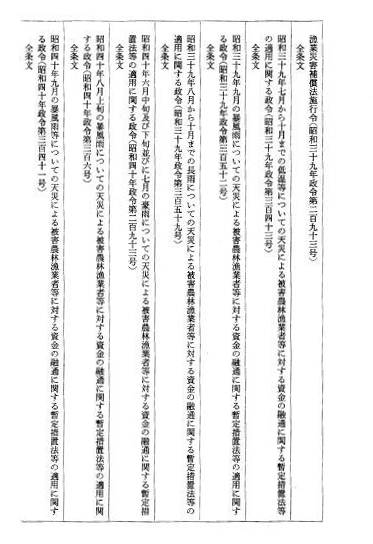 漁業災害補償法施行令(昭和三十九年政令第二百九十三号)
全条文
昭和三十九年七月から十月までの低温等についての天災による被害農林漁業者等に対する資金の融通に関する暫定措置法等
の適用に関する政令(昭和三十九年政令第三百四十三号)
全条文
昭和三十九年九月の暴風雨についての天災による被害農林漁業者等に対する資金の融通に関する暫定措置法等の適用に関す
る政令(昭和三十九年政令第三百五十二号)
全条文
昭和三十九年八月から十月までの長雨についての天災による被害農林漁業者等に対する資金の融通に関する暫定措置法等の
適用に関する政令(昭和三十九年政令第三百五十九号)
全条文
昭和四十年六月中旬及び下旬並びに七月の豪雨についての天災による被害農林漁業者等に対する資金の融通に関する暫定措
置法等の適用に関する政令(昭和四十年政令第二百九十三号)
全条文
昭和四十年八月上旬の暴風雨についての天災による被害農林漁業者等に対する資金の融通に関する暫定措置法等の適用に関
する政令(昭和四十年政令第三百六号)
全条文
昭和四十年九月の暴風雨等についての天災による被害農林漁業者等に対する資金の融通に関する暫定措置法等の適用に関す
る政令(昭和四十年政令第三百四十一号)
全条文